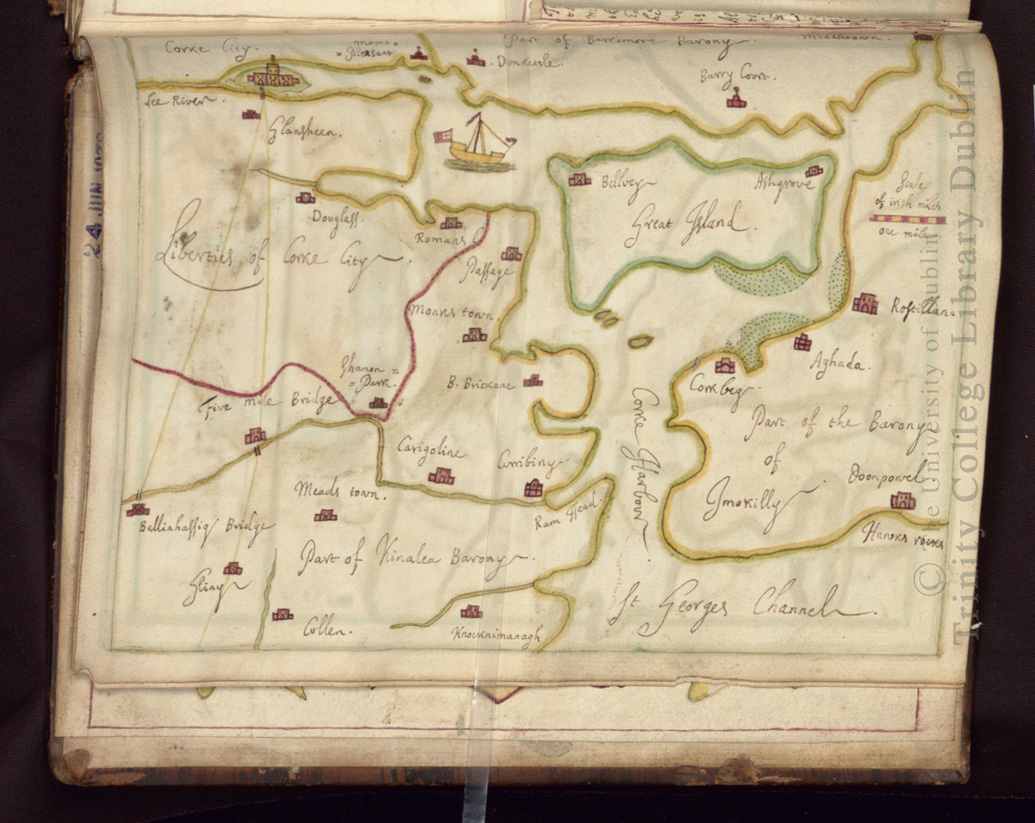 Corke City.
Mount=
=Pleasant
Dunkettle.
Part of Barrimore Barony
Midleton.
Barry Court.
Lee River.
Glansheen.
Belluey
Ashgrove
Great Island.
Scale
of irish miles
one mile.
Douglass.
Romans
Liberties of Corke City.
Passage
Monks town
Rostillan.
Aghada.
Shanon=
=Park.
B. Brickane
Corkbeg.
Five mile Bridge
Corke Harbour
Part of the Barony
of
Imokilly
Carigoline
Curribiny
Doonpowel
Meads town.
Ram Head.
Ballinhassig Bridge
Hanoks rocks
Part of Kinalea Barony.
Gliny
St Georges Channel.
Cullen.
Knocknimanagh.
24 JUN
© The University of Dublin
Trinity College Library Dublin